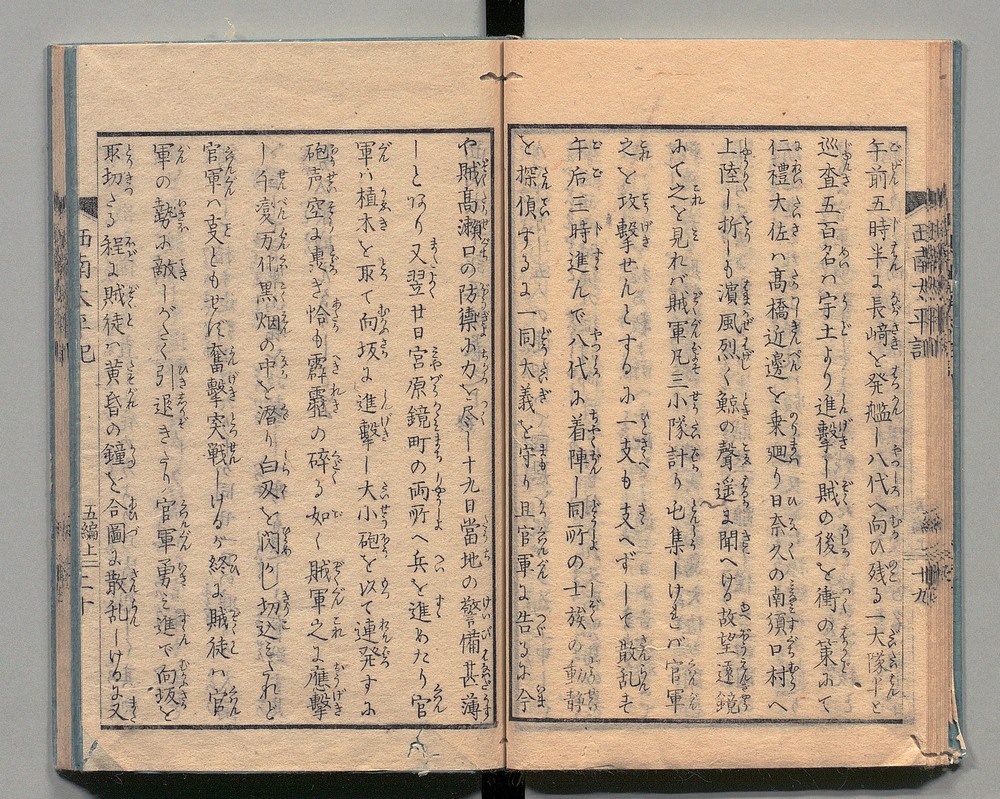 午前五時半に長﨑を発艦し八代へ向ひ残る一大隊半と
巡査五百名ハ宇土より進擊し賊の後を衝の策にて
仁禮大佐ハ髙橋近邊を乗廻り日奈久の南須口村へ
上陸し折しも濵風烈く鯨の聲遥に聞へける故望遠鏡
にて之を見れバ賊軍凡三小隊計り屯集しけれバ官軍
之を攻擊せんとするに一支も支へずして散乱せ
午后三時進んで八代に着陣し同所の士族の動静
を探偵するに一同大義を守り且官軍に告るに今
や賊髙瀬口の防禦に力を尽し十九日當地の警備甚薄
しとなり又翌廿日宮原鏡町の両所へ兵を進めたり官
軍ハ植木を取て向坂に進擊し大小砲を以て連発すに
砲声空に轟き恰も霹靂の碎る如く賊軍之に應擊
し千変万化黒烟の中を潜り白刄を閃かし切込みたれど
官軍ハ事ともせず奮擊突戦しけるが終に賊徒ハ官
軍の勢に敵しがたく引退きたり官軍勇み進で向坂を
取切たる程に賊徒ハ黄昏の鐘を合圖に散乱しけるに又
西南太平記
五編上
二十